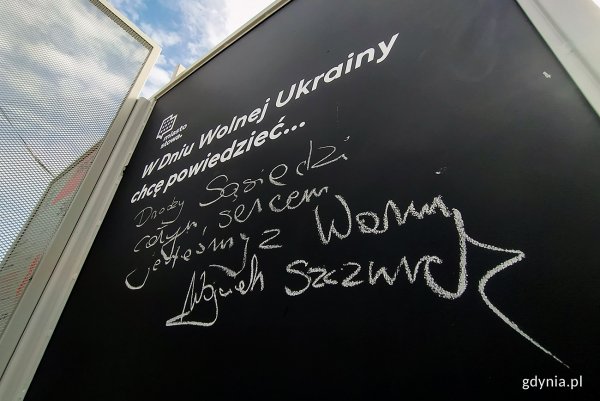 miasto
słowa
W Dniu Wolnej Ukrainy
chcę powiedzieć...
Drodzy Sąsiedzi
całym sercem
jesteśmy z Wami
Wojciech Szczurek
gdynia.pl